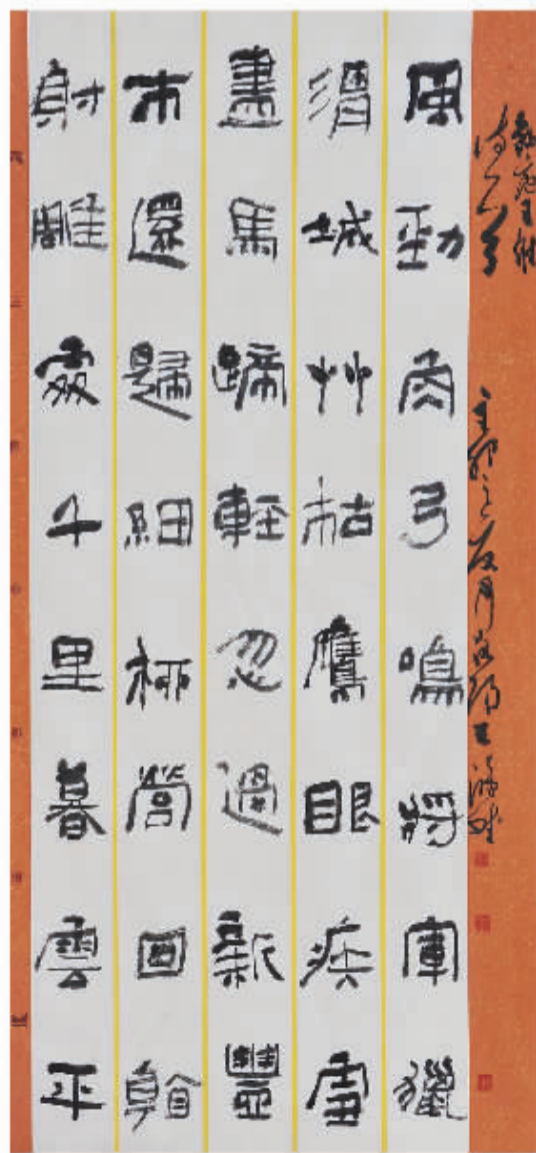 風勁角弓鳴將軍獵
渭城艸枯鷹眼疾雪
盡馬蹄輕忽過新豐
市還歸細柳營回看
射雕處千里暮雲平